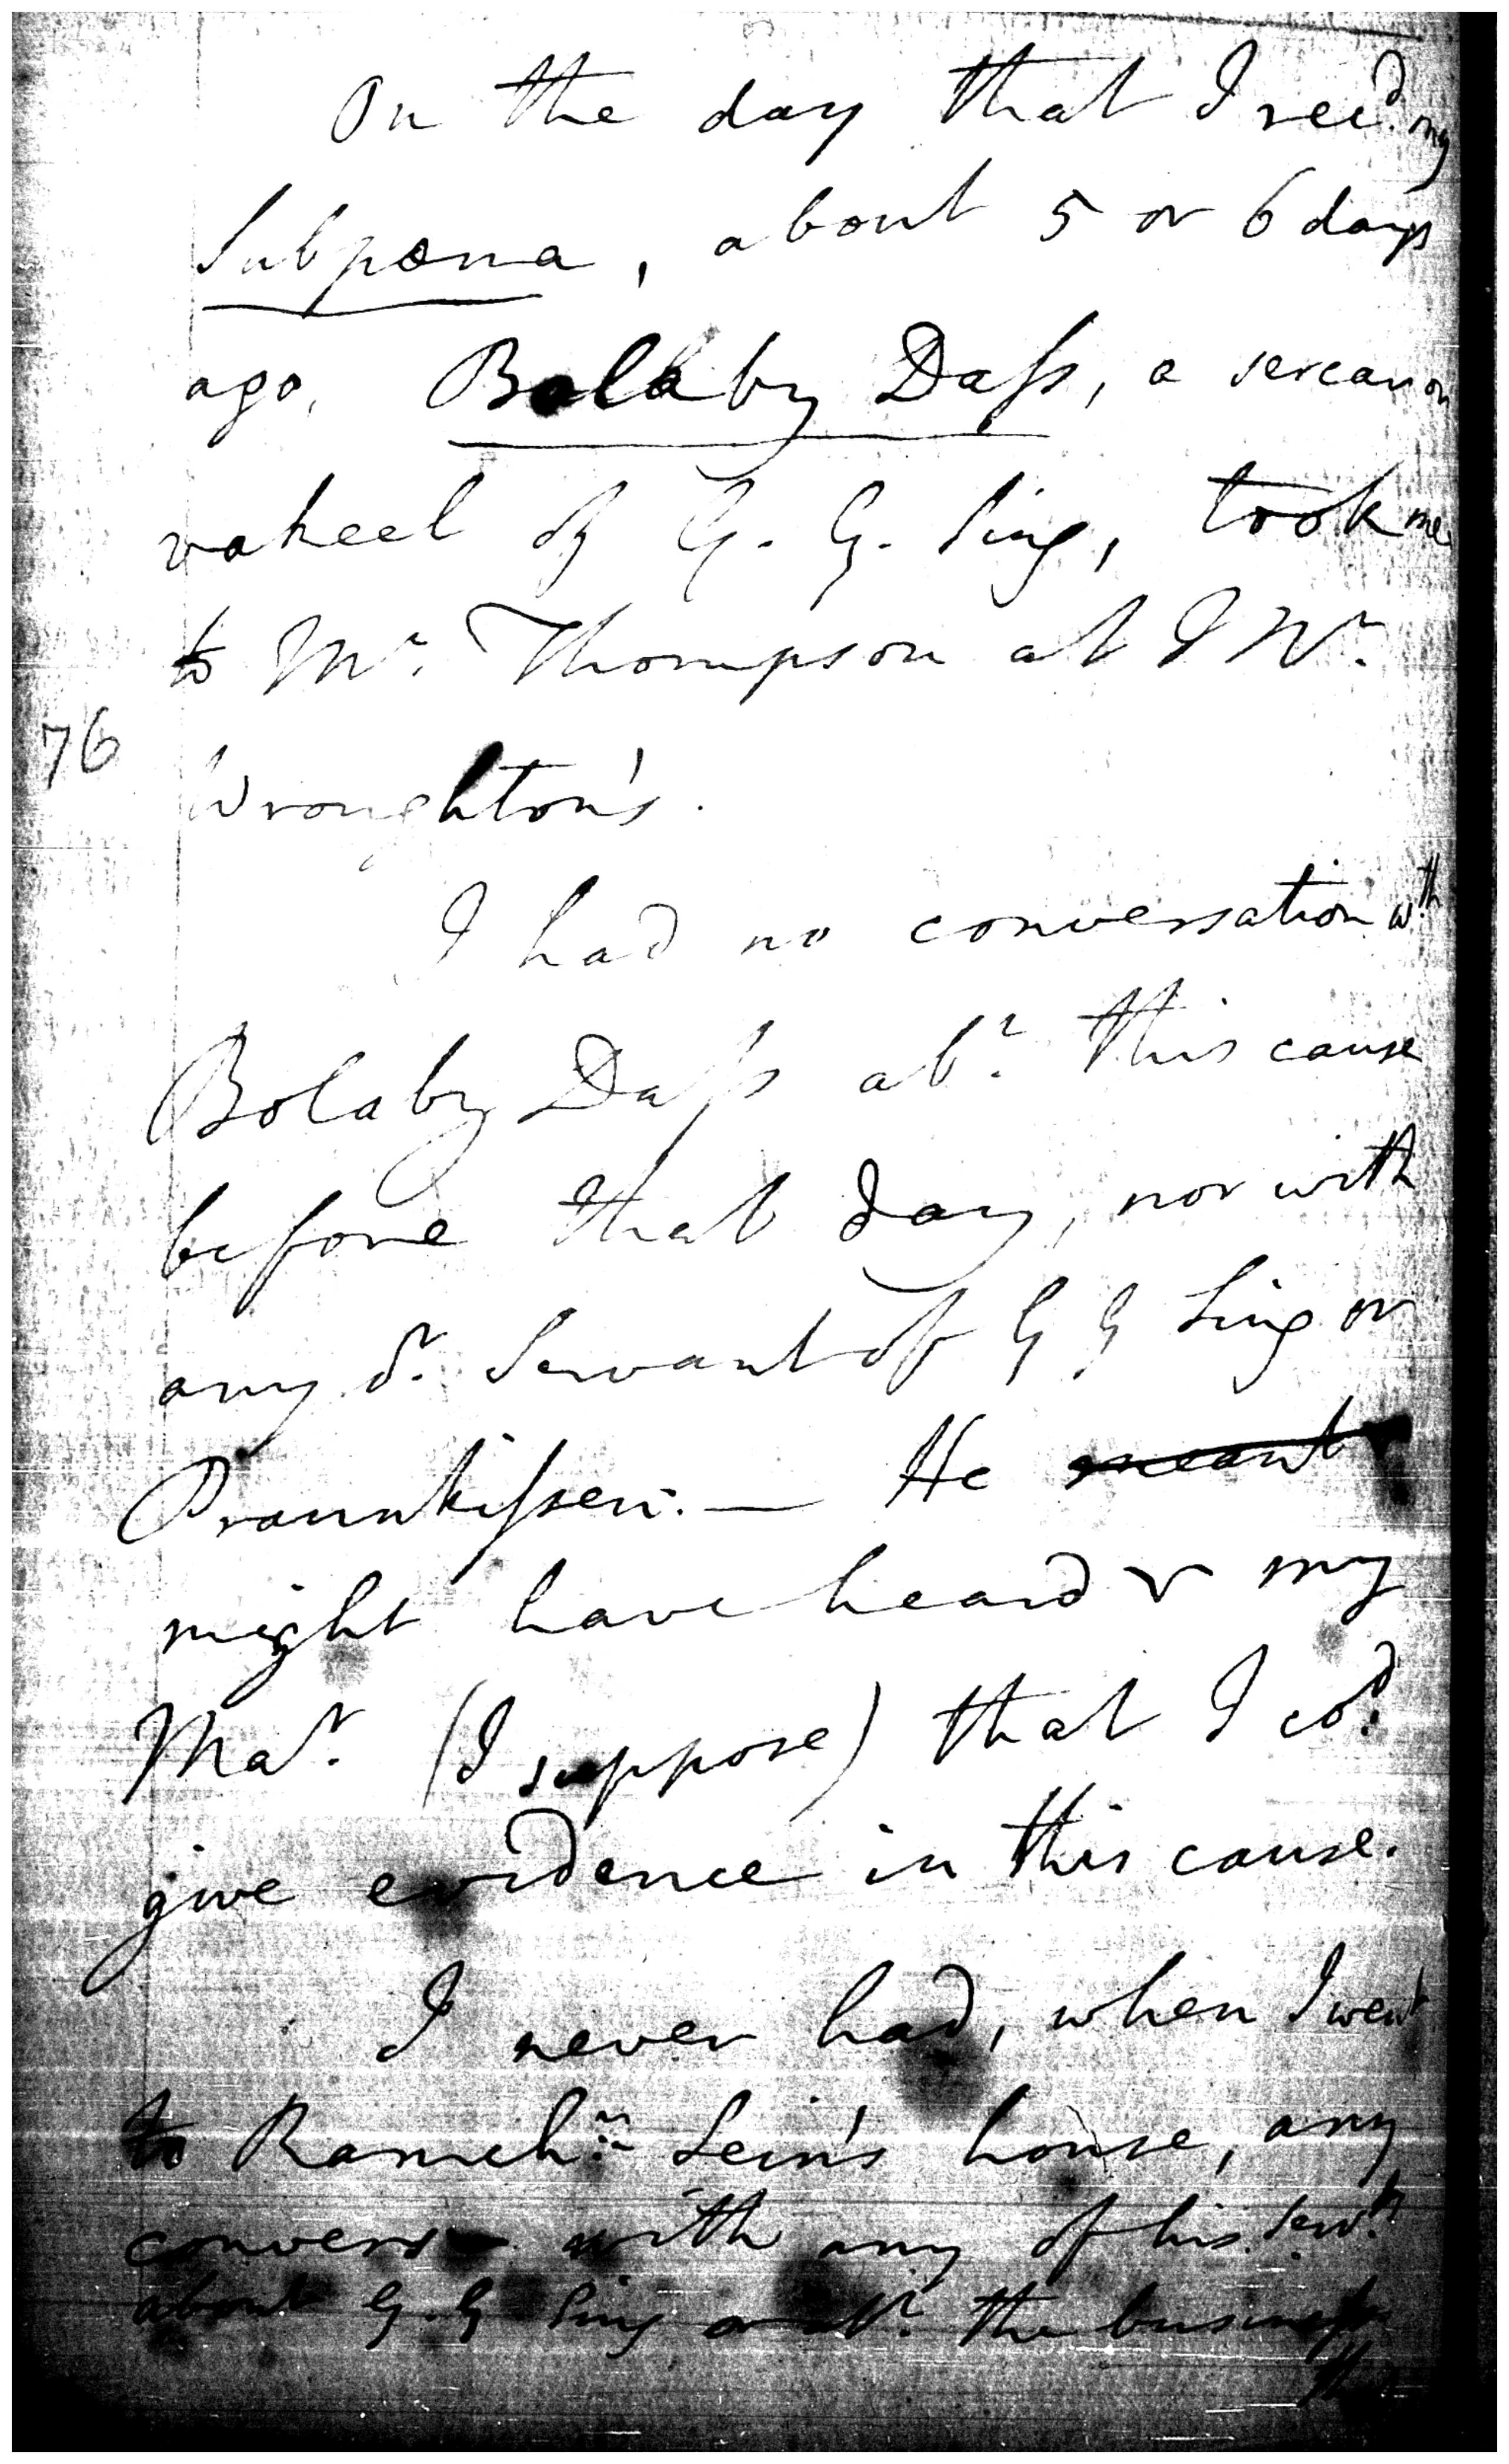 On the day that I rec.d my
Subpoena, about 5 or 6 days
ago, Bolaby Dass, a sercar or
vakeel of G. G. Sing, took me
to Mr. Thompson at
76
Wroughton's.
I had no conversation w.th
Bolaby Dass ab.t this cause
before that day, nor with
any or. Servant of G G Sing or
Praunkissen. — He meant
might have heard my
Mar. (I suppose) that I co.d
give evidence in this cause.
I never had, when I went
to Ramch.n Sein's house, any
convers with any of his serv.ts
about G. G Sing or ab.t the business